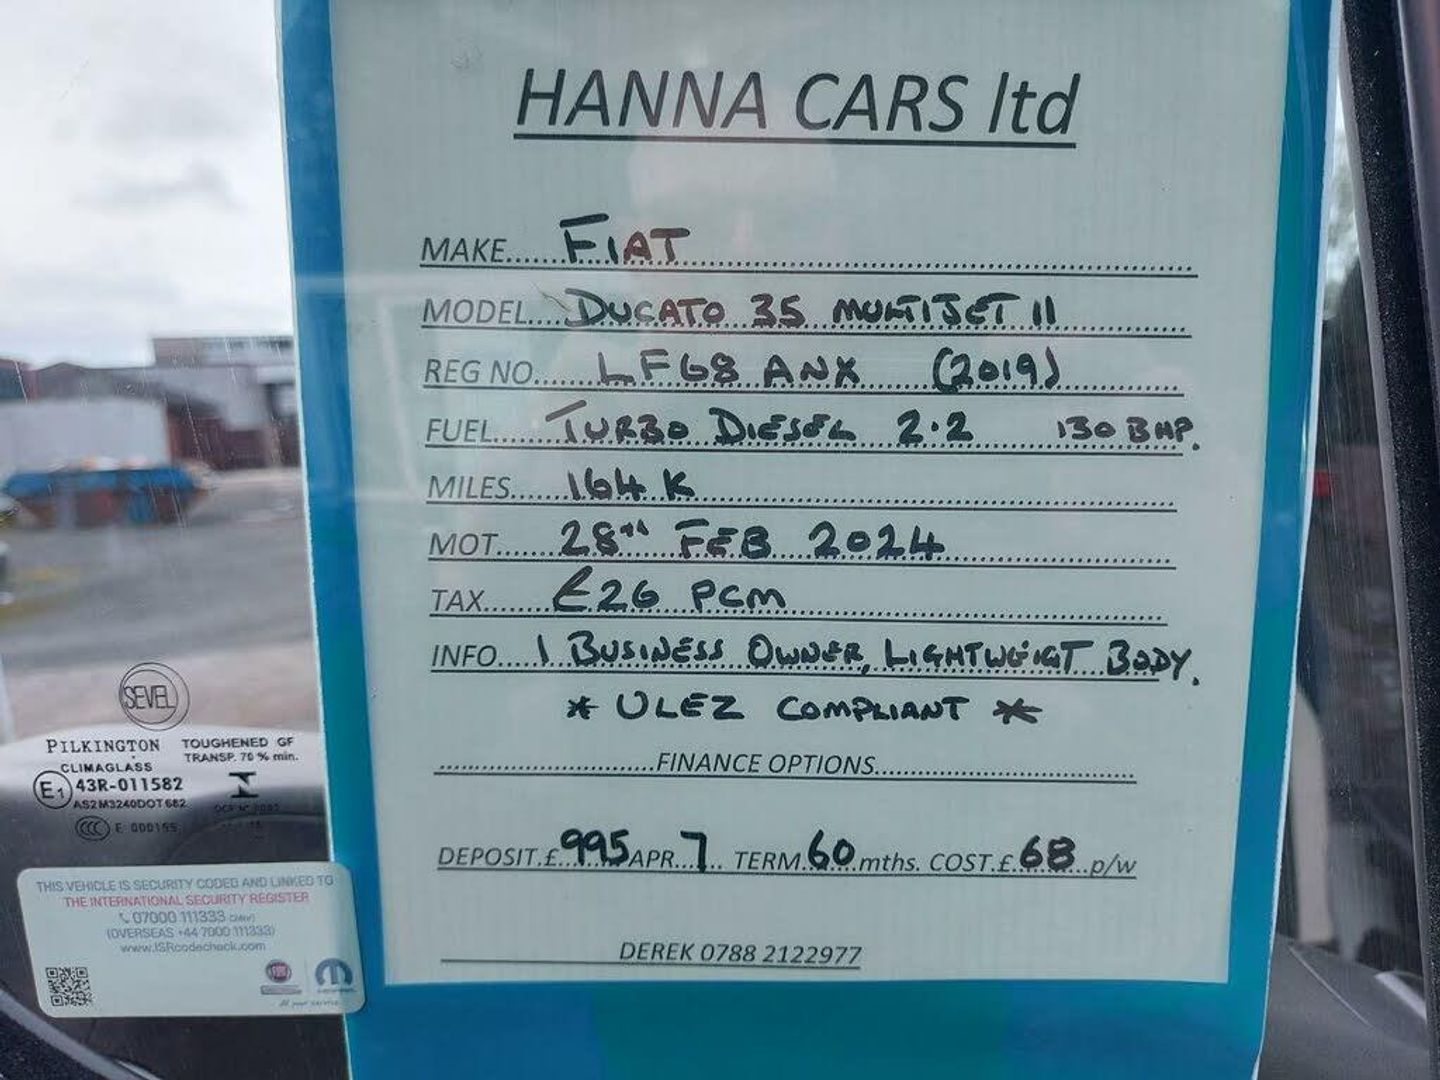 HANNA CARS ltd
MAKE......FIAT
MODEL....DUCATO 35 MULTIJET II
REG NO.....LF68 ANX (2019)
FUEL......TURBO DIESEL 2.2 130 BHP.
MILES......164 K
MOT.......28TH FEB 2024
TAX.......£26 PCM
INFO....1 BUSINESS OWNER, LIGHTWEIGT BODY.
* ULEZ COMPLIANT *
FINANCE OPTIONS
DEPOSIT.£..995 APR...7... TERM.60.mths. COST.£.68...p/w
DEREK 0788 2122977
SEVEL
PILKINGTON TOUGHENED GF
CLIMAGLASS TRANSP. 70 % min.
E1 43R-011582
AS2 M3240DOT 682
CCC E 000199
THIS VEHICLE IS SECURITY CODED AND LINKED TO
THE INTERNATIONAL SECURITY REGISTER
07000 111333 (24hr)
(OVERSEAS +44 7000 111333)
www.ISRcodecheck.com
FIAT
At your service